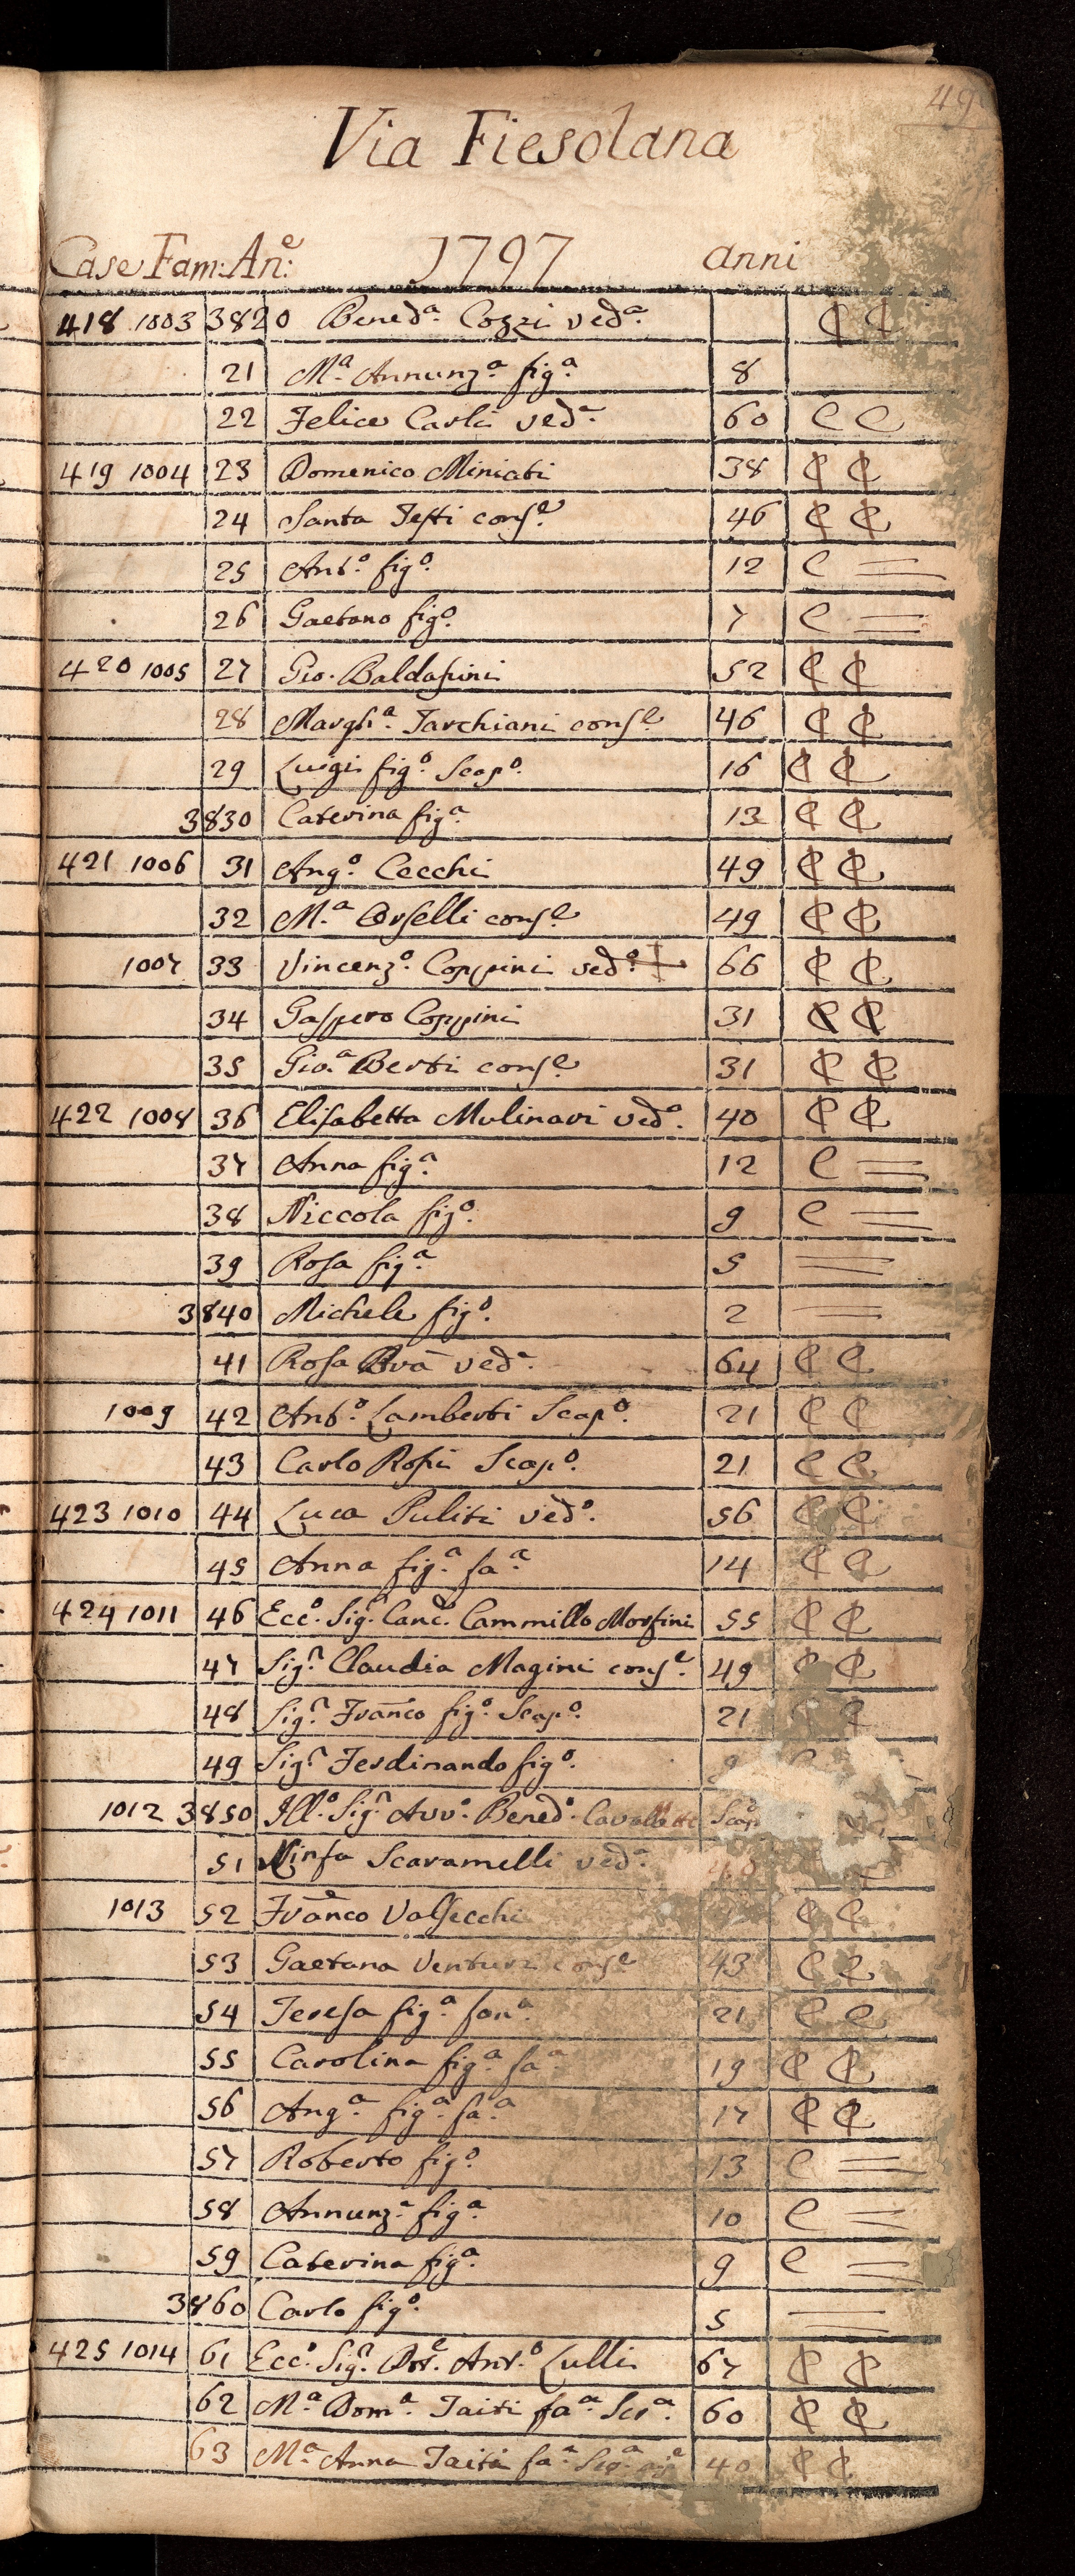 49
Via Fiesolana
Case Fam: An.e: 1797 anni
418 1003 3820 Bened.a Cozzi ved.a C C
21 M.a Annunz.a fig.a 8
22 Felice Carli ved.a 60 C C
419 1004 23 Domenico Miniati 38 C C
24 Santa Testi cons.e 46 C C
25 Ant.o fig.o 12 C =
26 Gaetano fig.o 7 C =
420 1005 27 Gio. Baldassini 52 C C
28 Margh.a Tarchiani cons.e 46 C C
29 Luigi fig.o Scap.o 16 C C
3830 Caterina fig.a 13 C C
421 1006 31 Ang.o Cecchi 49 C C
32 M.a Orselli cons.e 49 C C
1007 33 Vincenz.o Coppini ved.o 66 C C
34 Gaspero Coppini 31 C C
35 Gio.a Berti cons.e 31 C C
422 1008 36 Elisabetta Mulinari ved.a 40 C C
37 Anna fig.a 12 C =
38 Niccola fig.o 9 C =
39 Rosa fig.a 5 =
3840 Michele fig.o 2 =
41 Rosa ved.a 64 C C
1009 42 Ant.o Lamberti Scap.o 21 C C
43 Carlo Rossi Scap.o 21 C C
423 1010 44 Luca Puliti ved.o 56 C C
45 Anna fig.a fa.a 14 C C
424 1011 46 Ecc.o Sig.r Canc.e Cammillo Morfini 55 C C
47 Sig.ra Claudia Magini cons.e 49 C C
48 Sig.r Franco fig.o Scap.o 21 C
49 Sig.r Ferdinando fig.o 9
1012 3850 Ill.o Sig.r Avv.o Bened.o Cavalletti Scap
51 Ninfa Scaramelli ved.a
1013 52 Franco Valsecchi C C
53 Gaetana Venturi cons.e 43 C C
54 Teresa fig.a fan.a 21 C C
55 Carolina fig.a fa.a 19 C C
56 Ang.a fig.a fa.a 17 C C
57 Roberto fig.o 13 C =
58 Annunz.a fig.a 10 C =
59 Caterina fig.a 9 C =
3860 Carlo fig.o 5 =
425 1014 61 Ecc.o Sig.r Dot.e Ant.o Lulli 67 C C
62 M.a Dom.a Taiti fa.a Ser.a 60 C C
63 M.a Anna Taiti fa.a 40 C C